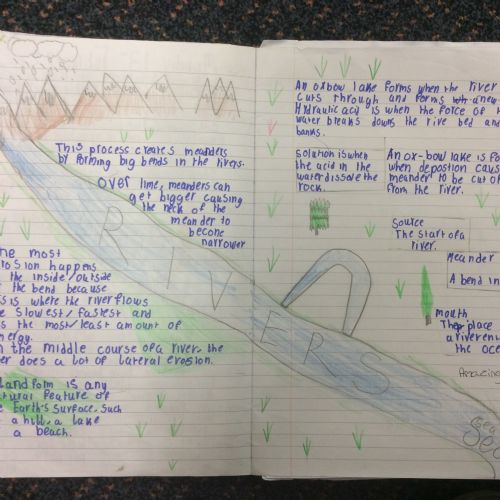 This process creates meanders
by forming big bends in the rivers.
Over time, meanders can
get bigger causing
the neck of the
meander to
become
narrower
RIVERS
most
happens
the inside/outside
the bend because
is where the river flows
slowest/fastest and
the most/least amount of
the middle course of a river, the
does a lot of lateral erosion.
landform is any
feature of
Earth's surface, such
a hill, a lake
a beach.
An oxbow lake forms when the river
cuts through and forms a new
Hydraulic acid is when the force of
water breaks down the rive bed and
banks.
Solution is when
the acid in the
water dissolve the
rock.
An ox-bow lake is
when depostion
meander to be cut
from the river.
Source
The start of a
river.
Meander
A bend in
mouth
The place
a river
the
Sea